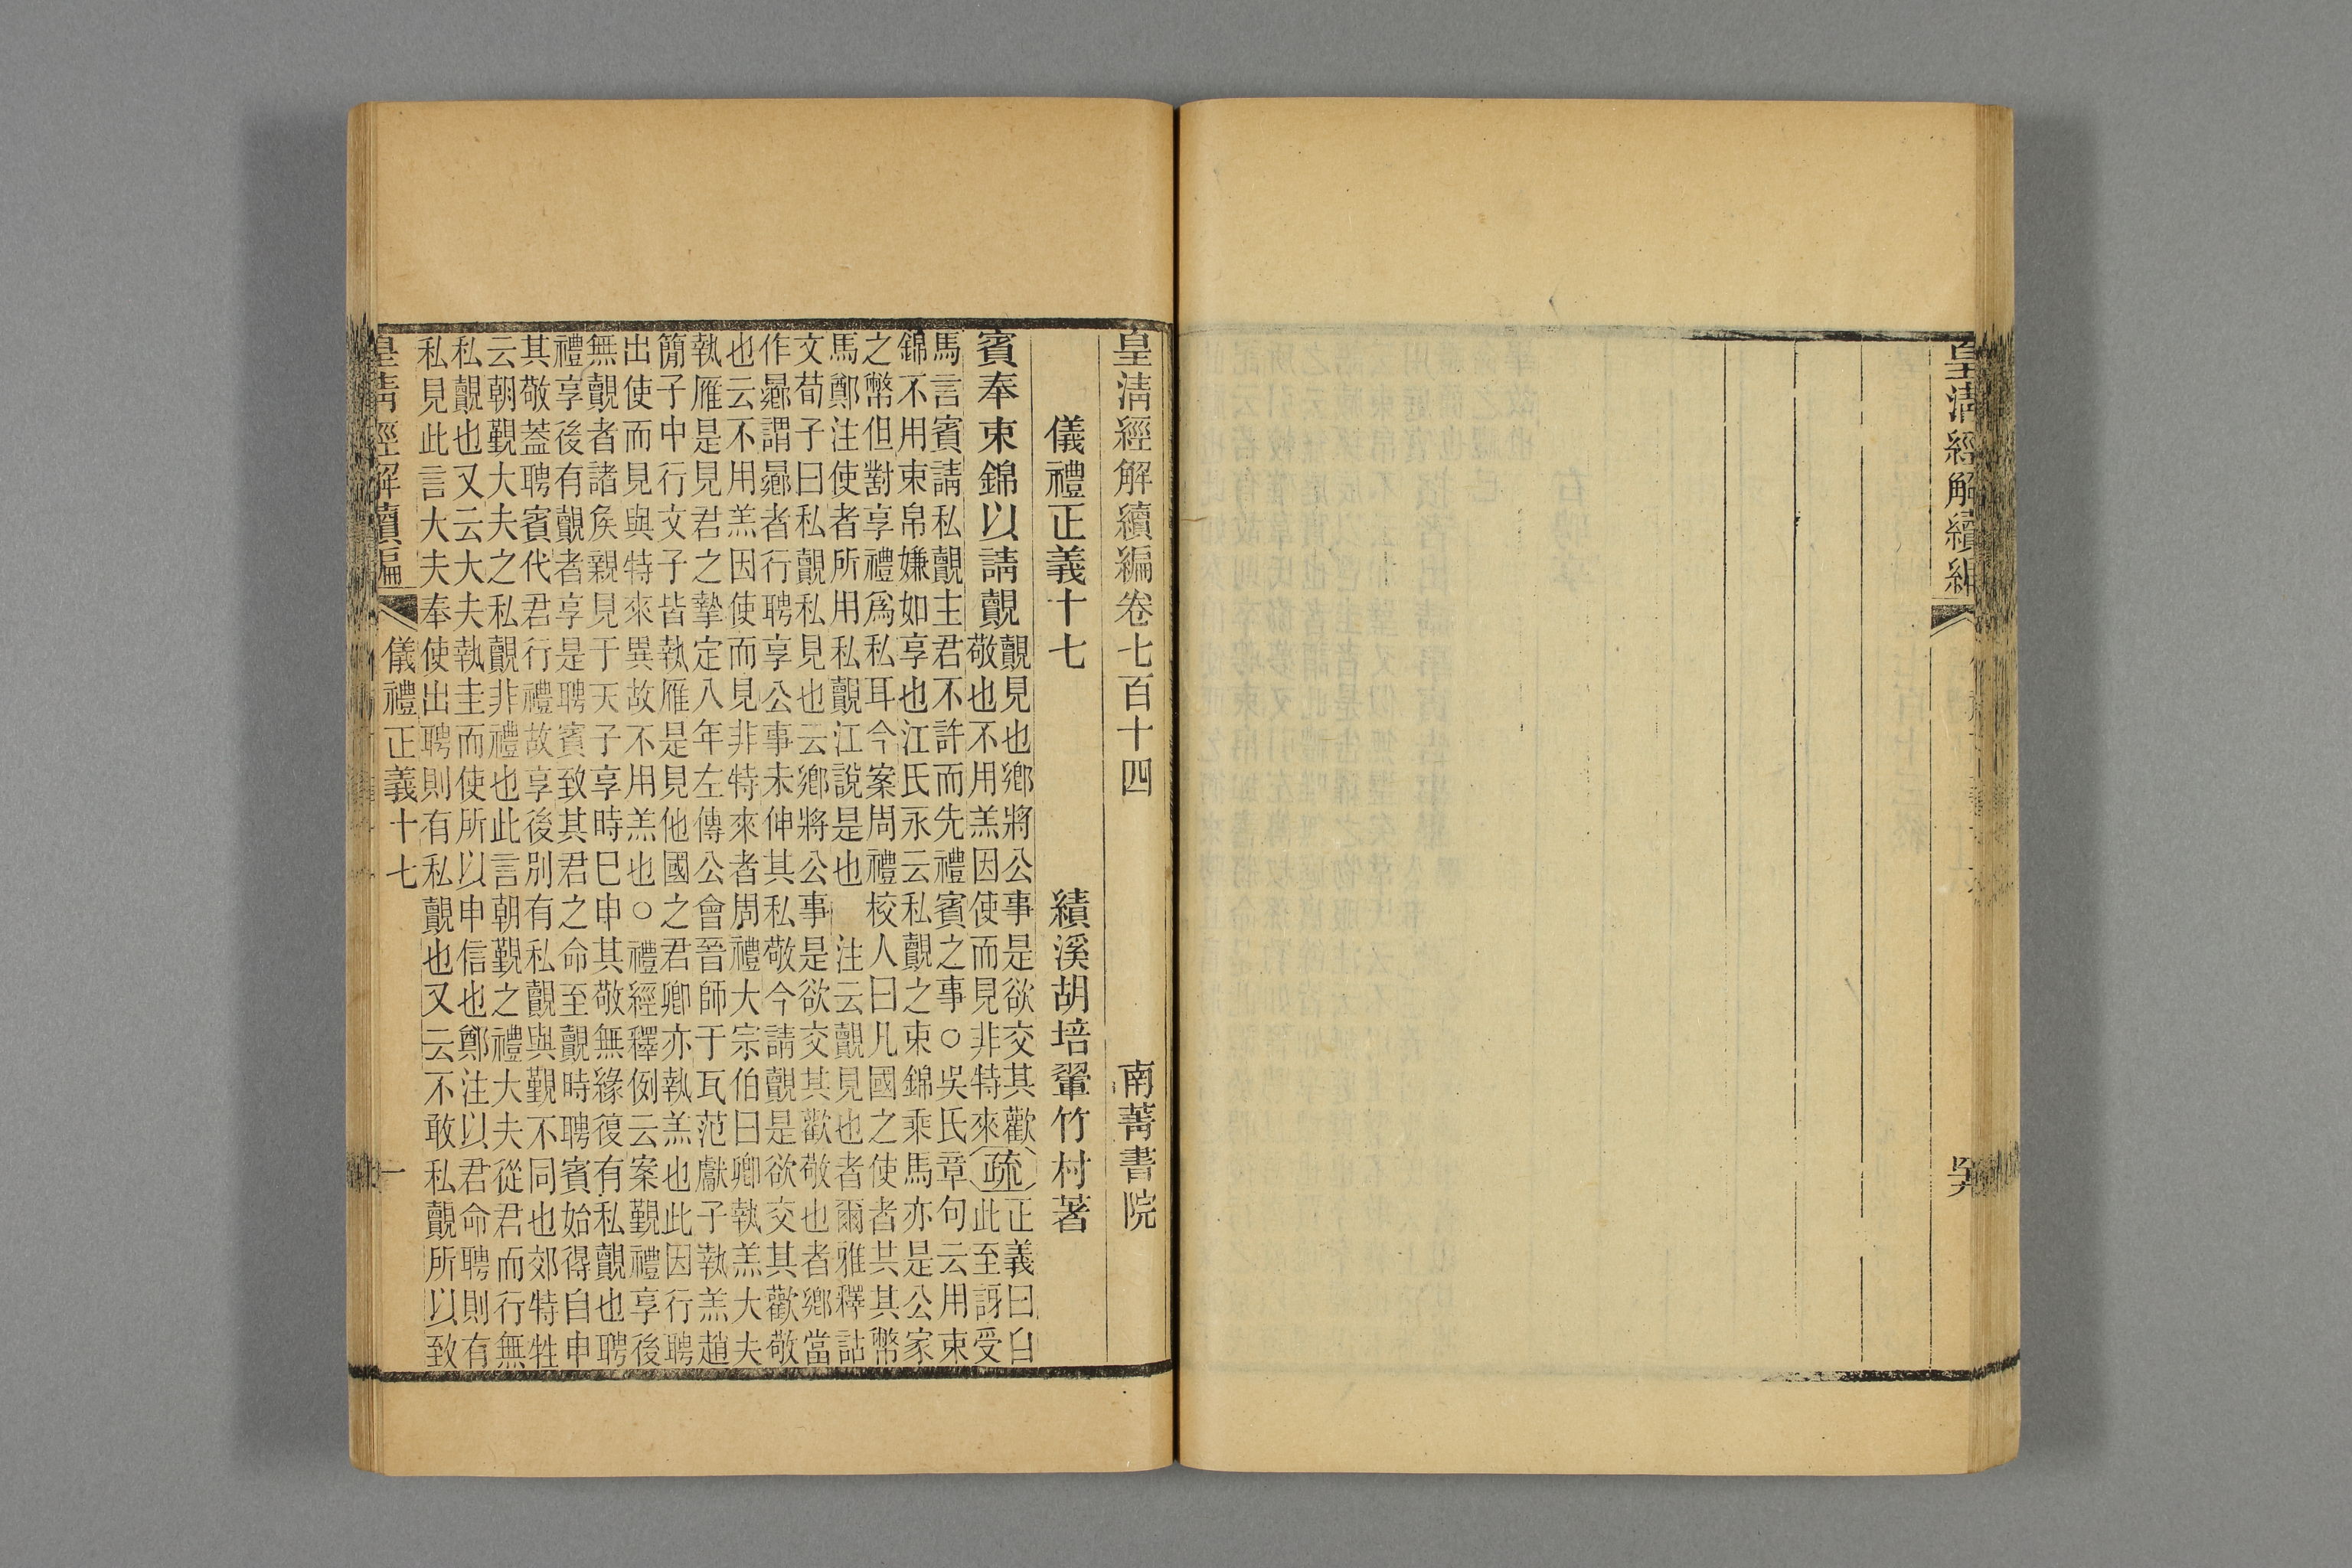 皇清經解續編
皇清經解續編卷七百十四 南菁書院
儀禮正義十七 績溪胡培翬竹村著
賓奉束錦以請覿
覿見也鄉將公事是欲交其歡
敬也不用羔因使而見非特來
疏
正義曰自
此至訝受
馬言賓請私覿主君不許而先禮賓之事○吳氏章句云用束
錦不用束帛嫌如享也江氏永云私覿之束錦乘馬亦是公家
之幣但對享禮爲私耳今案周禮校人曰凡國之使者共其幣
馬鄭注使者所用私覿江說是也 注云覿見也者爾雅釋詁
文荀子曰私覿私見也云鄉將公事是欲交其歡敬也者鄉當
作曏謂曏者行聘享公事未伸其私敬今請覿是欲交其歡敬
也云不用羔因使而見非特來者周禮大宗伯曰卿執羔大夫
執雁是見君之摯定八年左傳公會晉師于瓦范獻子執羔趙
簡子中行文子皆執雁是見他國之君卿亦執羔也此因行聘
出使而見與特來異故不用羔也○禮經釋例云案覲禮享後
無覿者諸矦親見于天子享時已申其敬無緣復有私覿也聘
禮享後有覿者享是聘賓致其君之命至覿時聘賓始得自申
其敬蓋聘賓代君行禮故享後別有私覿與覲不同也郊特牲
云朝覲大夫之私覿非禮也此言朝覲之禮大夫從君而行無
私覿也又云大夫執圭而使所以申信也鄭注以君命聘則有
私見此言大夫奉使出聘則有私覿也又云不敢私覿所以致
皇清經解續編 儀禮正義十七 一